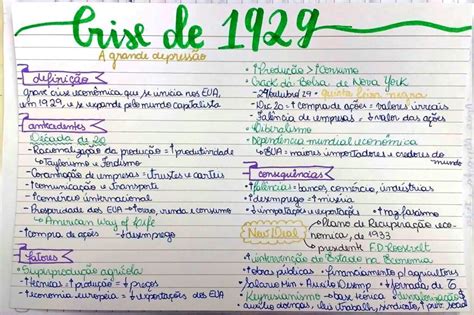 Crise de 1929
A grande depressão
definição
Grave crise econômica que se inicia nos EUA,
em 1929, e se expande pelo mundo capitalista
antecedentes
Década de 20
- Racionalização da produção = ↑ produtividade
↳ Taylorismo e Fordismo
- Concentração de empresas: trustes e cartéis
- ↑ comunicação e transporte
- ↑ comércio internacional
- Prosperidade dos EUA → ↑ renda e consumo
↳ American Way of Life
- ↑ compra de ações - ↓ desemprego
fatores
• Superprodução agrícola
- ↑ técnicas = ↑ produção = ↓ preços
- ↑ economia europeia = ↓ exportações dos EUA
• ↑ Produção > ↑ Consumo
• Crack da Bolsa de Nova York
- 24/outubro/29 - quinta feira negra
- Déc 20 = ↑ compra de ações = valores irreais
- Falência de empresas = ↓ valor das ações
• Liberalismo
• Dependência mundial econômica
↳ EUA = maiores importadores e credores do mundo
consequências
• ↑ falências: bancos, comércio, indústrias
• ↑ desemprego • ↑ miséria
• ↓ importações e exportações • ↑ nazifascismo
New Deal → Plano de Recuperação econômica, de 1933
↳ presidente F.D. Roosevelt
• ↑ intervenção do Estado na Economia
• ↑ obras públicas • financiamento p/ agricultores
• Salário Mín + Auxílio Desemp • ↓ jornada de T
• Keynesianismo → base teórica
auxílio doenças, lei trabalho, sindicato,